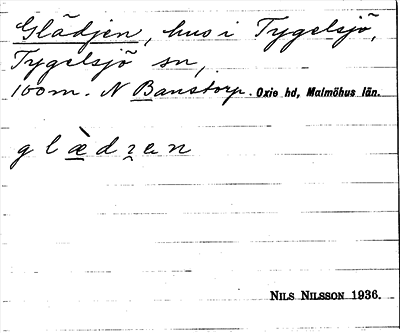 Glädjen, hus i Tygelsjö,
Tygelsjö sn,
100m. N Banstorp. Oxie hd, Malmöhus län.
g l æ̀ d z e n
NILS NILSSON 1936.